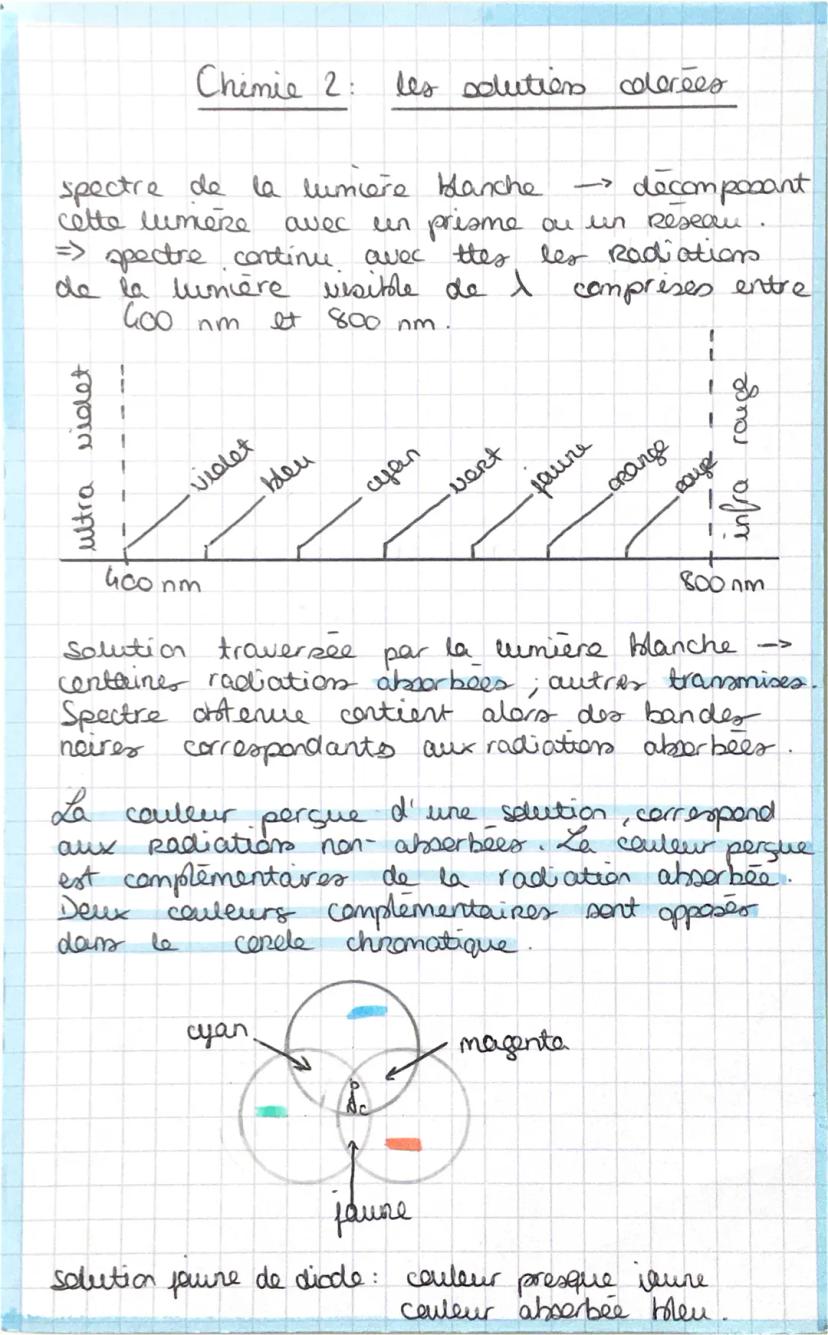 Chimie 2: les solutions colorées
spectre de la lumière blanche → décomposant
cette lumière avec un prisme ou un réseau.
=> spectre continu avec ttes les Radiations
de la lumière visible de λ comprises entre
400 nm et 800 nm.
ultra violet
violet
bleu
cyan
vert
jaune
orange
rouge
infra rouge
400 nm
800 nm
solution traversée par la lumière blanche →
containes radiations absorbées ; autres transmises.
Spectre obtenue contient alors des bandes
noires correspondants aux radiations absorbées.
La couleur perçue d'une solution, correspond
aux Radiations non-absorbées. La couleur perçue
est complémentaires de la radiation absorbée.
Deux couleurs complémentaires sont opposés
dans le cercle chromatique.
cyan
magenta
jaune
solution jaune de diode : couleur presque jaune
couleur absorbée bleu.